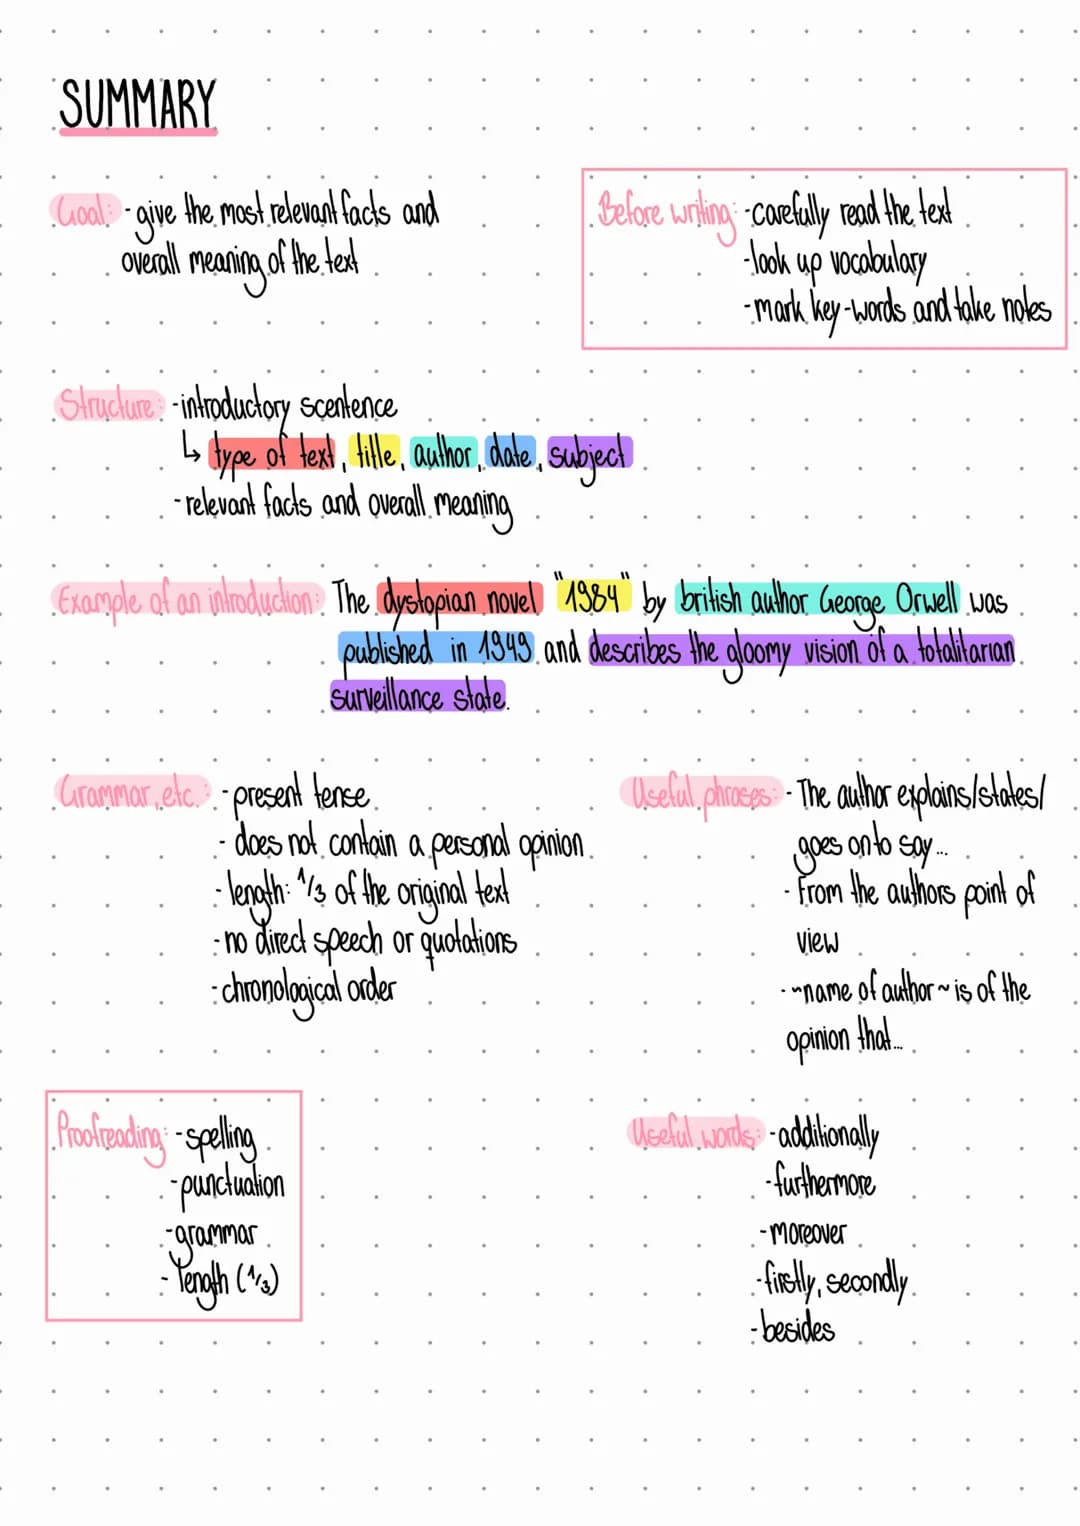 SUMMARY
Goal: - give the most relevant facts and
overall meaning of the text
Before writing: - carefully read the text
- look up vocabulary
- mark key-words and take notes
Structure: - introductory scentence
↳ type of text, title, author, date, subject
- relevant facts and overall meaning
Example of an introduction: The dystopian novel "1984" by british author George Orwell was
published in 1949 and describes the gloomy vision of a totalitarian
surveillance state.
Grammar, etc.: - present tense
- does not contain a personal opinion
- length: 1/3 of the original text
- no direct speech or quotations
- chronological order
Useful phrases: - The author explains/states/
goes on to say...
- From the authors point of
view
- ~name of author~ is of the
opinion that...
Proofreading: - spelling
- punctuation
- grammar
- length (1/3)
Useful words: - additionally
- furthermore
- moreover
- firstly, secondly
- besides